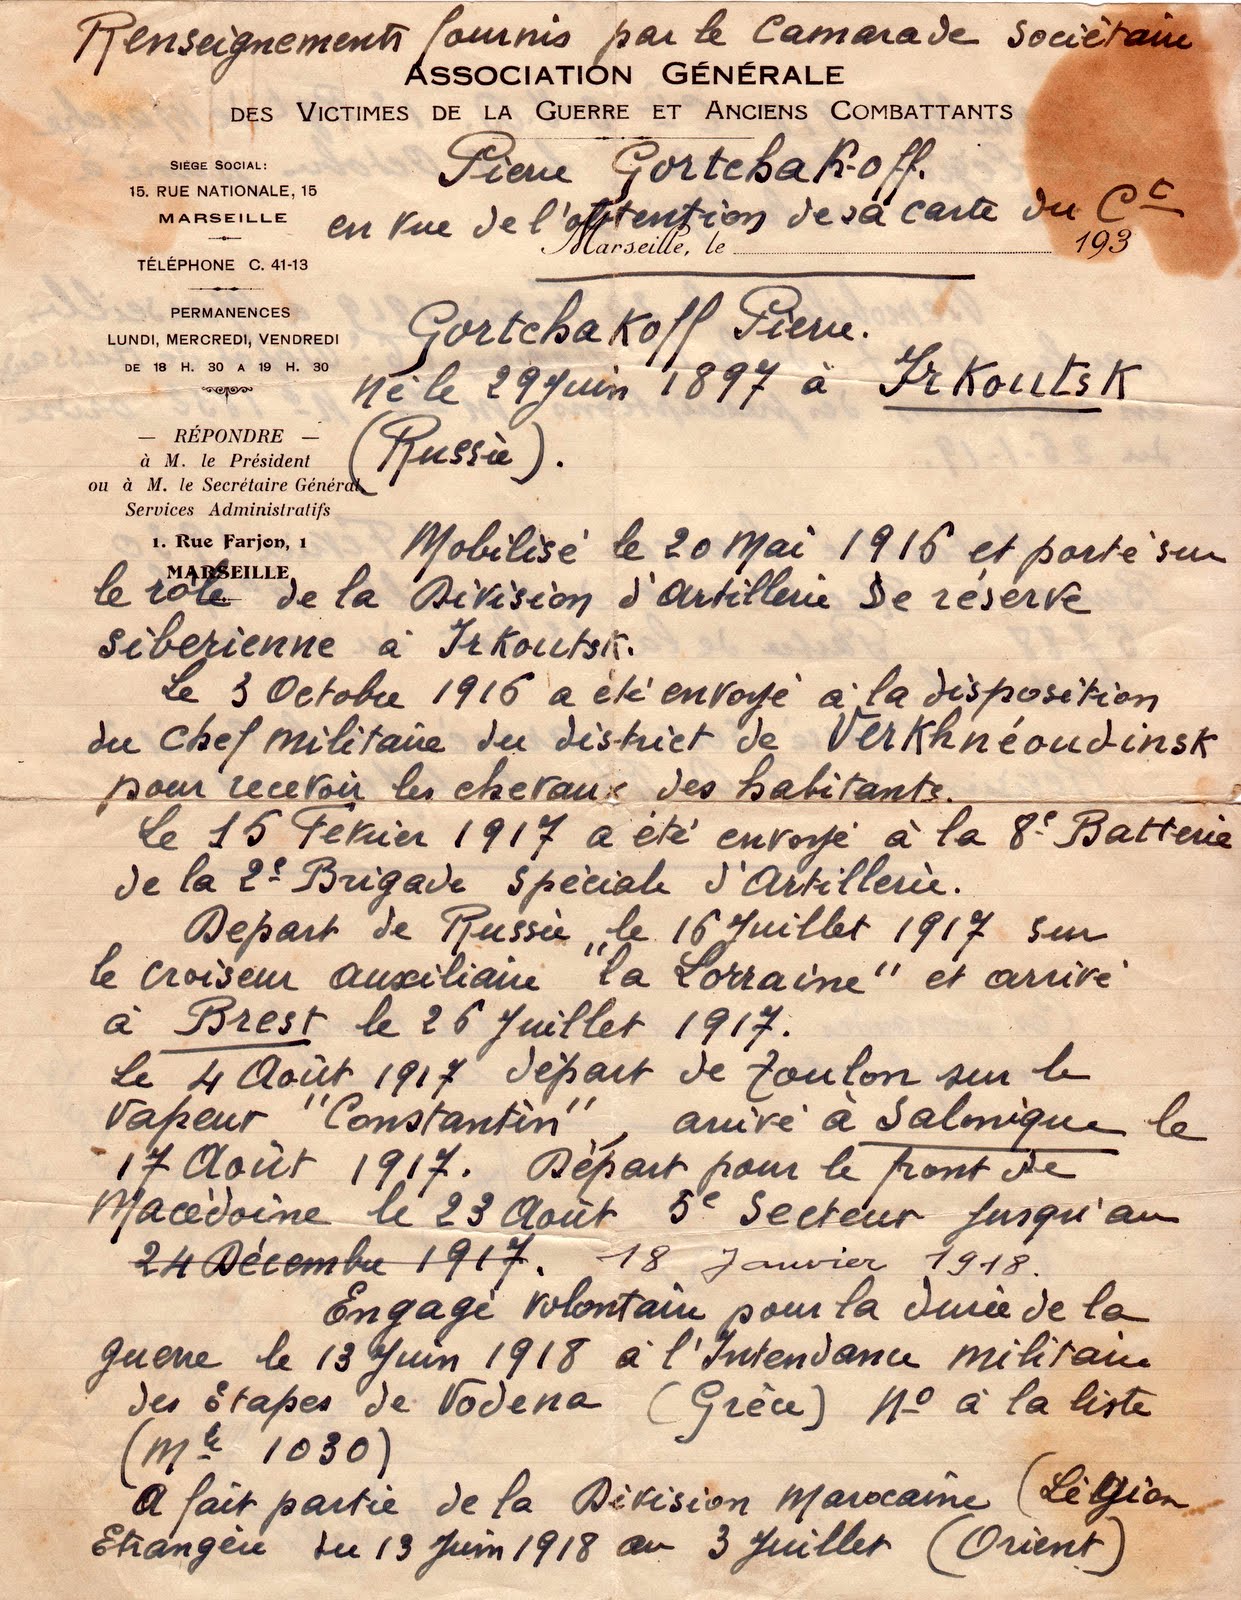 Renseignements fournis par le Camarade Sociétaire
ASSOCIATION GÉNÉRALE
DES VICTIMES DE LA GUERRE ET ANCIENS COMBATTANTS
Pierre Gortchakoff.
en vue de l'obtention de sa carte du Cᵗ
Marseille, le 193
SIÈGE SOCIAL:
15. RUE NATIONALE, 15
MARSEILLE
TÉLÉPHONE C. 41-13
PERMANENCES
LUNDI, MERCREDI, VENDREDI
DE 18 H. 30 A 19 H. 30
— RÉPONDRE —
à M. le Président
ou à M. le Secrétaire Général
Services Administratifs
1. Rue Farjon, 1
MARSEILLE
Gortchakoff Pierre.
né le 29 Juin 1897 à Irkoutsk
(Russie).
Mobilisé le 20 Mai 1916 et porté sur
le rôle de la Division d'Artillerie de réserve
siberienne à Irkoutsk.
Le 3 Octobre 1916 a été envoyé à la disposition
du chef militaire du district de Verkhnéoudinsk
pour recevoir les chevaux des habitants.
Le 15 Février 1917 a été envoyé à la 8e Batterie
de la 2e Brigade spéciale d'Artillerie.
Depart de Russie le 16 Juillet 1917 sur
le croiseur auxiliaire "la Lorraine" et arrivé
à Brest le 26 Juillet 1917.
Le 4 Août 1917 départ de Toulon sur le
vapeur "Constantin", arrivé à Salonique le
17 Août 1917. Départ pour le front de
Macédoine le 23 Août 5e Secteur jusqu'au
24 Décembre 1917. 18 Janvier 1918.
Engagé volontaire pour la durée de la
guerre le 13 Juin 1918 à l'Intendance militaire
des Etapes de Vodena (Grèce) No à la liste
(Mle 1030)
A fait partie de la Division Marocaine (Légion
Etrangère du 13 Juin 1918 au 3 Juillet (Orient)